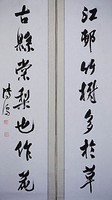 江邨竹樹多於草
古縣棠梨也作花